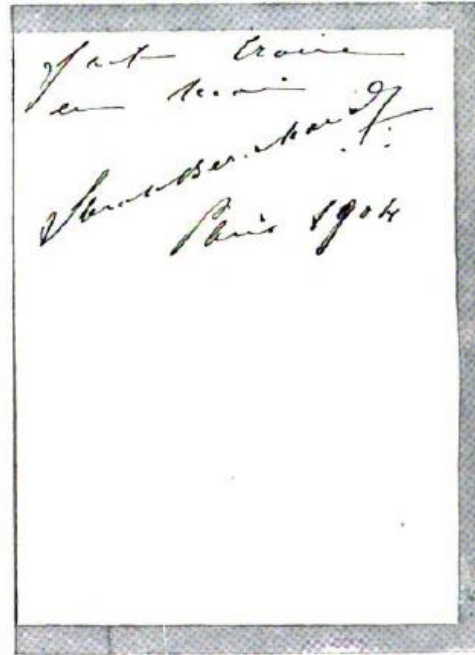 Faut croire
en moi
Sarah Bernhardt
Paris 1904